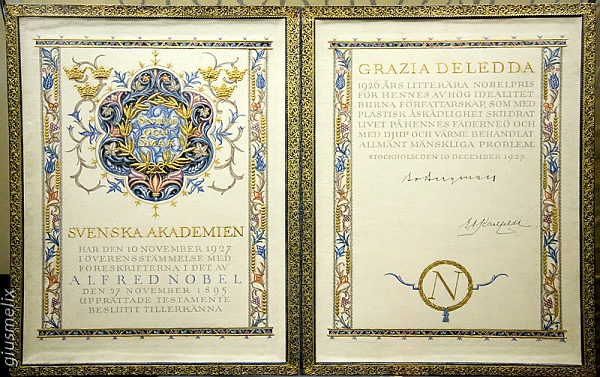 SNILLE
OCH
SMAK
SVENSKA AKADEMIEN
HAR DEN 10 NOVEMBER 1927
I ÖVERENSSTÄMMELSE MED
FÖRESKRIFTERNA I DET AV
ALFRED NOBEL
DEN 27 NOVEMBER 1895
UPPRÄTTADE TESTAMENTE
BESLUTIT TILLERKÄNNA
GRAZIA DELEDDA
1926 ÅRS LITTERÄRA NOBELPRIS
FÖR HENNES AV HÖG IDEALITET
BURNA FÖRFATTARSKAP, SOM MED
PLASTISK ÅSKÅDLIGHET SKILDRAT
LIVET PÅ HENNES FÄDERNEÖ OCH
MED DJUP OCH VÄRME BEHANDLAT
ALLMÄNT MÄNSKLIGA PROBLEM.
STOCKHOLM DEN 10 DECEMBER 1927.
Bo Bergman
E A Karlfeldt
N
giusmelix